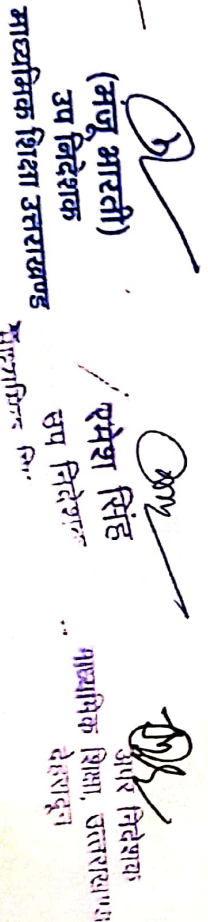 (मंजू भारती)
उप निदेशक
माध्यमिक शिक्षा उत्तराखण्ड
रमेश सिंह
उप निदेशक
अपर निदेशक
माध्यमिक शिक्षा, उत्तराखण्ड
देहरादून